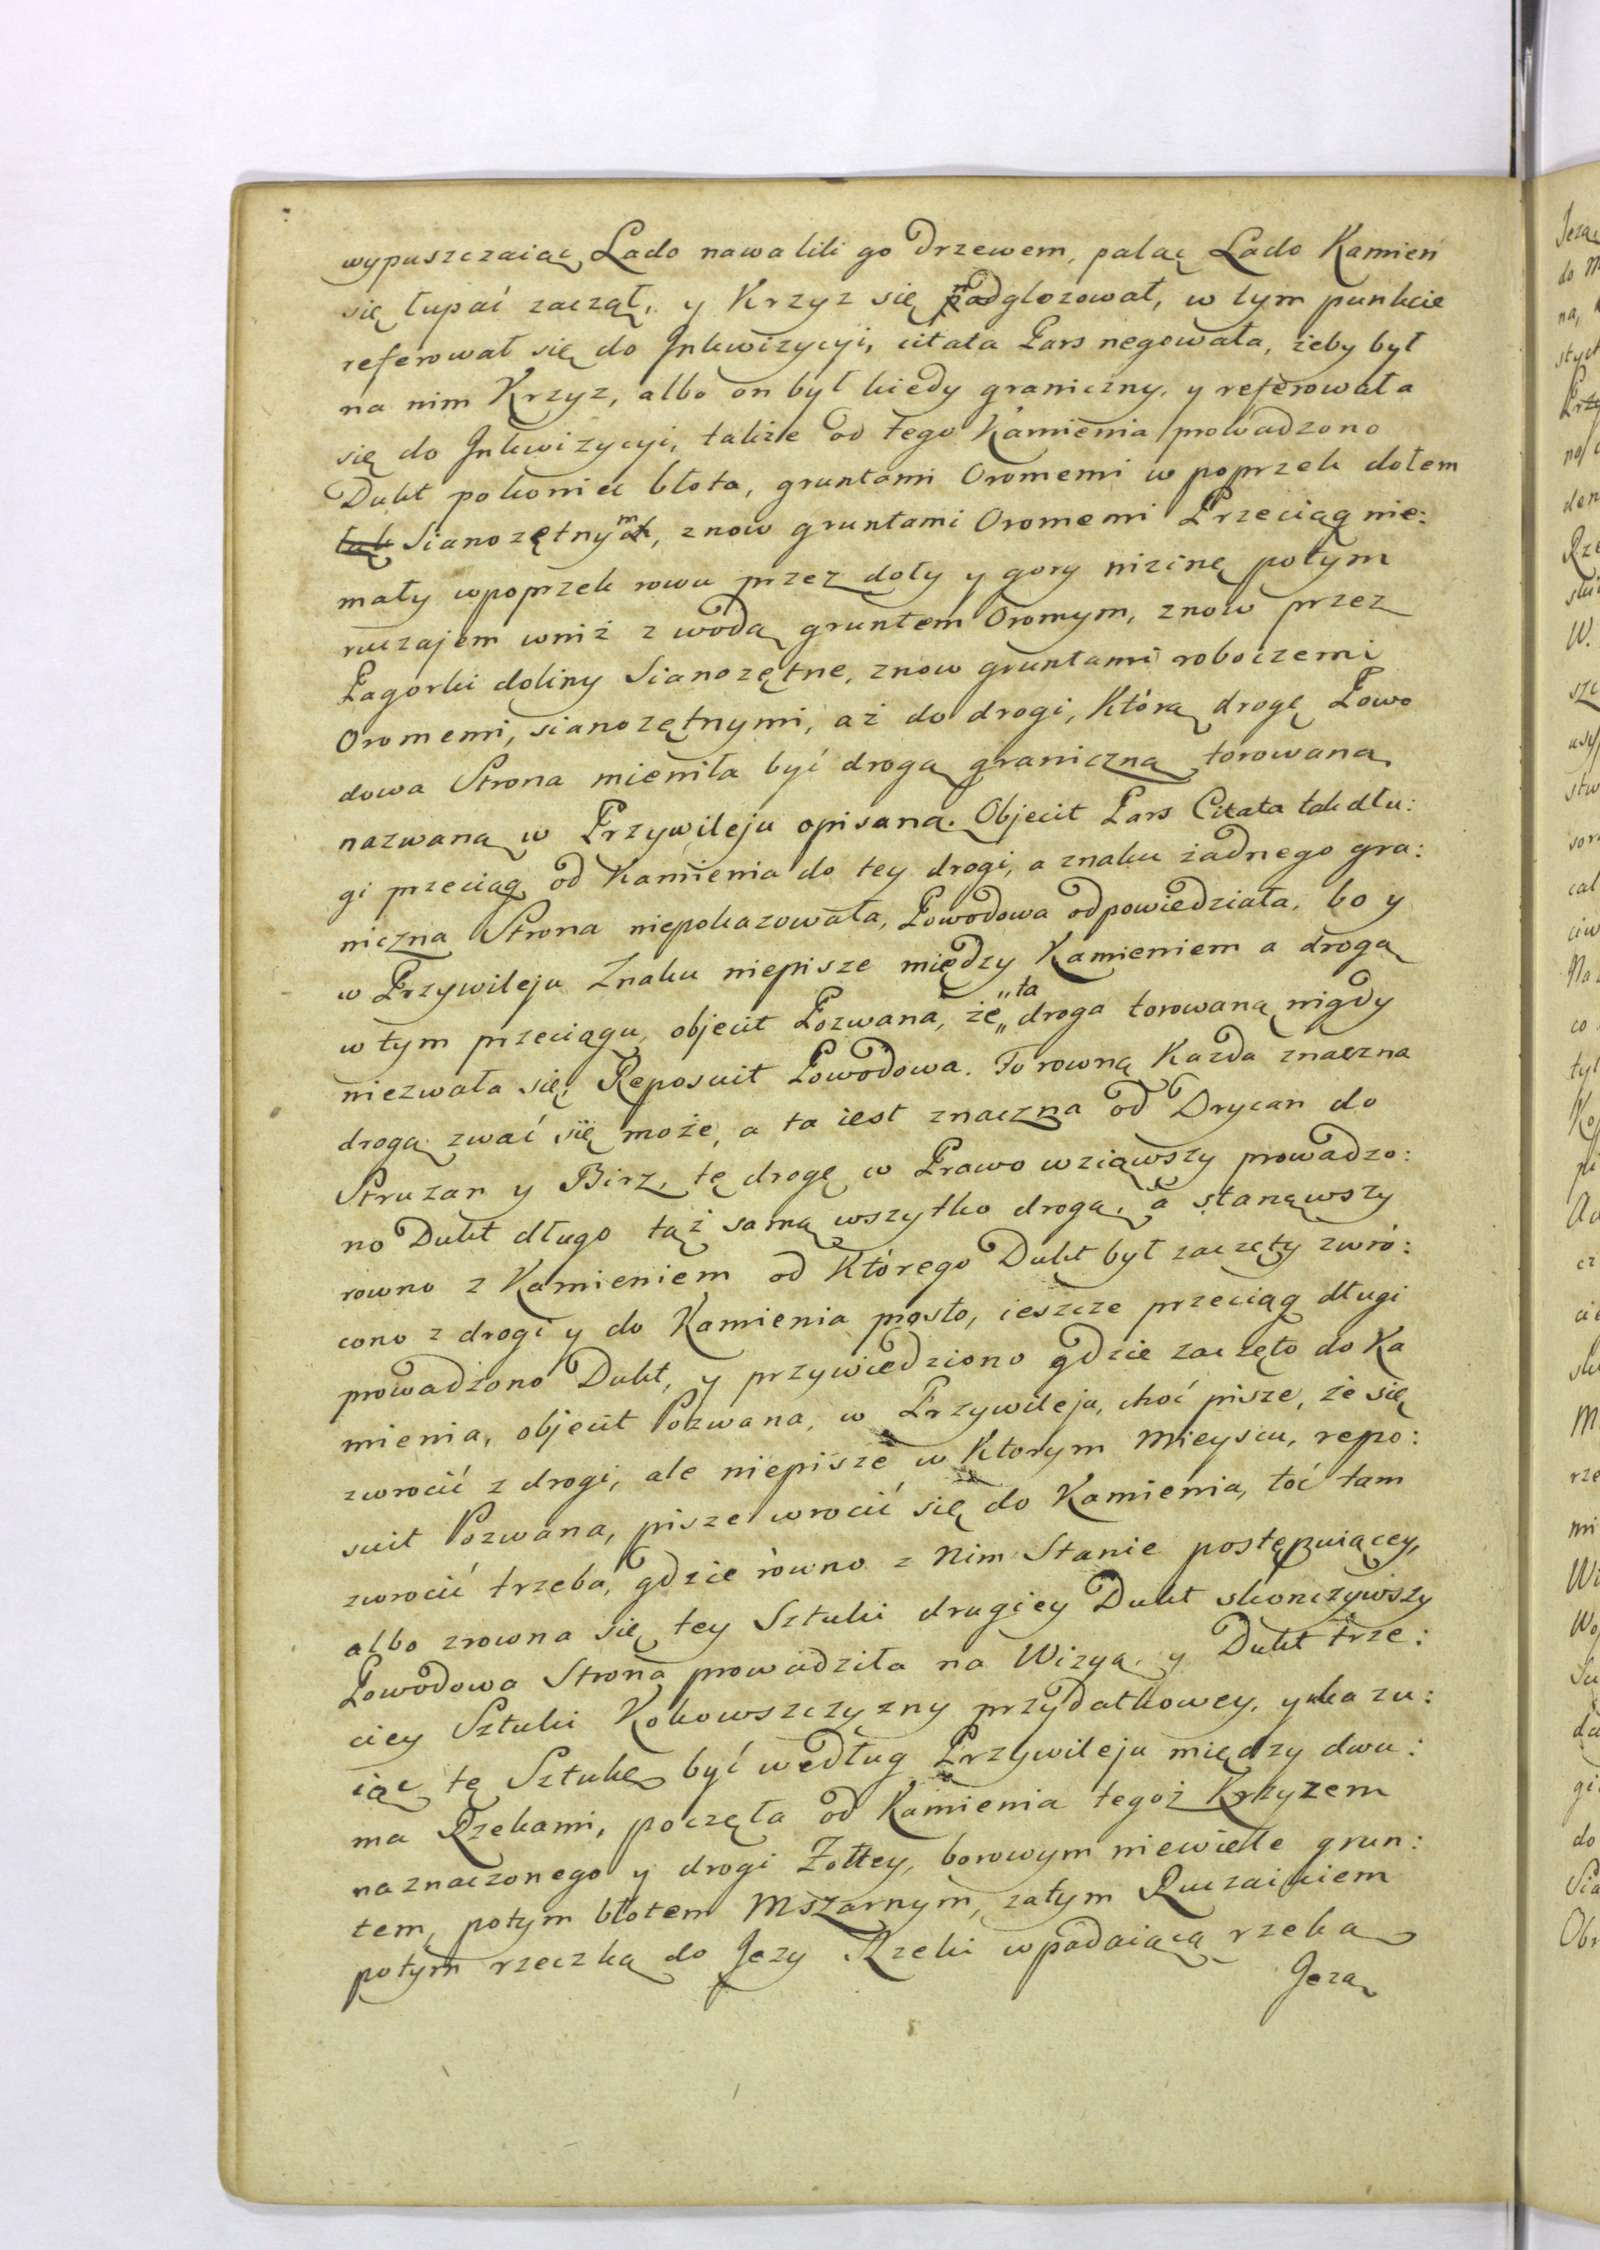 wypuszczaiąc Lado nawalili go drzewem, paląc Lado Kamień
się łupać zaczął, y Krzyz się nadglozował, w tym punkcie
referował się do Inkwizycyi, citata Pars negowała, żeby był
na nim Krzyz, albo on był kiedy graniczny, y referowała
się do Inkwizycyi, także od tego Kamienia prowadzono
Dukt pokoniec błota, gruntami Oromemi w poprzek dołem
Sianozętnym, znow gruntami Oromemi Przeciąg nie:
mały wpoprzek rowu przez doły y gory nizinę potym
ruczajem wniż z wodą gruntem Oromym, znow przez
Pagorki doliny Sianozętne, znow gruntami roboczemi
Oromemi, sianozętnymi, aż do drogi, Którą drogę Powo
dowa Strona mieniła być drogą graniczną torowaną
nazwaną w Przywileju opisaną. Objecit Pars Citata tak dłu:
gi przeciąg od Kamienia do tey drogi, a znaku żadnego gra:
niczna Strona niepokazowała, Powodowa odpowiedziała, bo y
w Przywileju Znaku niepisze między Kamieniem a drogą
w tym przeciągu, objecit Pozwana, że „ta„ droga torowaną nigdy
niezwała się, Reposuit Powodowa. Torowną Kazda znaczna
drogą zwać się może, a ta iest znaczna od Drycan do
Struzan y Birz, tę drogę w Prawo wziąwszy prowadzo:
no Dukt długo tąż samą wszytko drogą, a stanąwszy
rowno z Kamieniem od Którego Dukt był zaczęty zwró:
cono z drogi y do Kamienia prosto, ieszcze przeciąg długi
prowadzono Dukt, y przywiedziono gdzie zaczęto do Ka
mienia, objecit Pozwana, w Przywileju, choć pisze, że się
zwrocić z drogi, ale niepisze w Ktorym Mieyscu, repo:
suit Pozwana, pisze wrocić się do Kamienia, toć tam
zwrocić trzeba, gdzie rowno z Nim Stanie postępuiącey,
albo zrowna się tey Sztuki drugiey Dukt skonczywszy
Powodowa Strona prowadziła na Wizyą y Dukt trze:
ciey Sztuki Kokowszczyzny przydatkowey, ykazu:
iąc tę Sztukę być według Przywileju między dwu:
ma Rzekami, poczęła od Kamienia tegoż Krzyzem
naznaczonego y drogi Zołtey, borowym niewiele grun:
tem, potym błotem Mszarnym, zatym Ruczaikiem
potym rzeczką do Jezy Rzeki wpadaiącą rzeką
Jezą